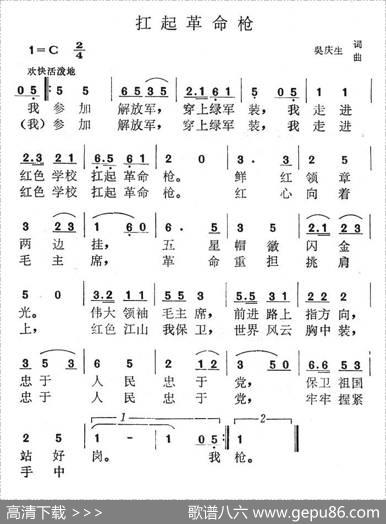 扛起革命枪
1=C 2/4
吴庆生 词曲
欢快活泼地
05 ‖: 5 5 | 65 35 | 2.1 61 | 5 05 |
我 参加 解放军, 穿上绿军 装, 我走进
(我) 参加 解放军, 穿上绿军 装, 我走进
2.3 21 | 6.5 61 | 2 0 | 3. 3 | 2 5 |
红色学校 扛起革命 枪。 鲜红领章
红色学校 扛起革命 枪。 红心向着
3 23 | 1 60 | 6. 5 | 3 5 | 2.1 23 |
两边 挂, 五星帽徽 闪金
毛主 席, 革命重担 挑肩
5 0 | 3.2 11 | 2.5 5 | 3.2 11 | 6.1 5 |
光。 伟大领袖 毛主席, 前进路上 指方向,
上, 红色江山 我保卫, 世界风云 胸中装,
35 3 | 1 6 5 | 2 12 | 3 50 | 6.6 53 |
忠于 人民 忠于 党, 保卫祖国
忠于 人民 忠于 党, 牢牢握紧
1 2
2 5 | 1 - | 1 05 :‖ 1 - ‖
站好 岗。 我 枪。
手中
高清下载 >>> | 歌谱八六 www.gepu86.com